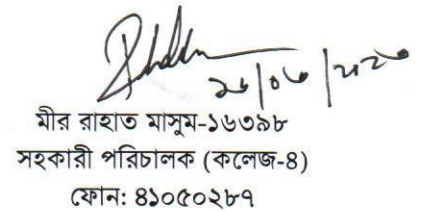 মীর রাহাত মাসুম-১৬৩৯৮
সহকারী পরিচালক (কলেজ-৪)
ফোন: ৪১০৫০২৮৭